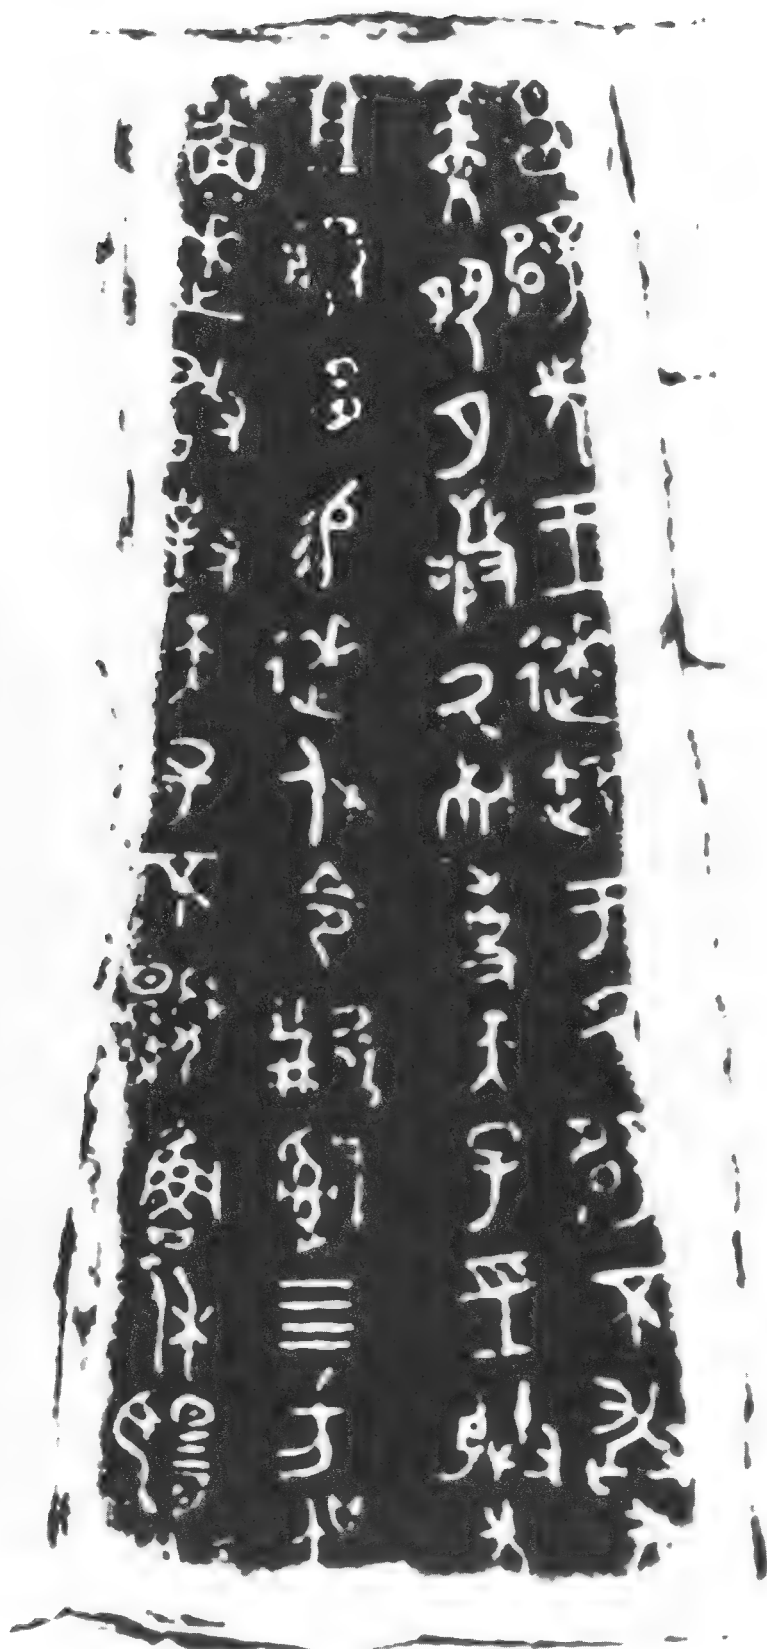 享辟先王逨御于厥辟不敢㒸
虔夙夕敬厥死事天子巠朕先
且服多易逨休令𤔲四方吳
𣛧逨敢對天子不顯魯休揚用